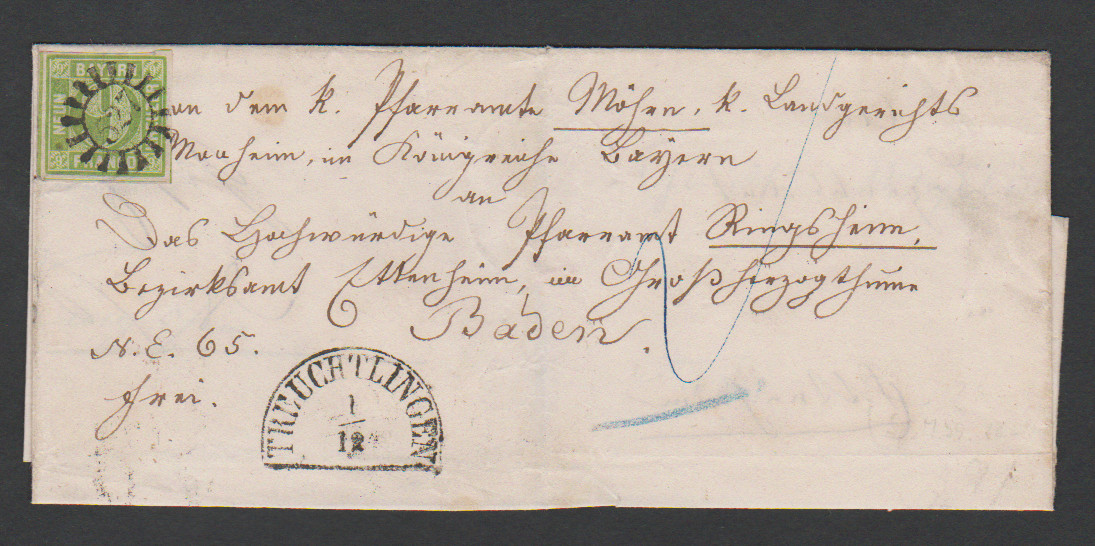 BAYERN
NEUN
Von dem k. Pfarramte Möhren, k. Landgerichts
Monheim, im Königreiche Bayern
an
Das Hochwürdige Pfarramt Ringsheim,
Bezirksamt Ettenheim, im Großherzogthume
Baden.
N. E. 65.
frei.
TREUCHTLINGEN
1
12